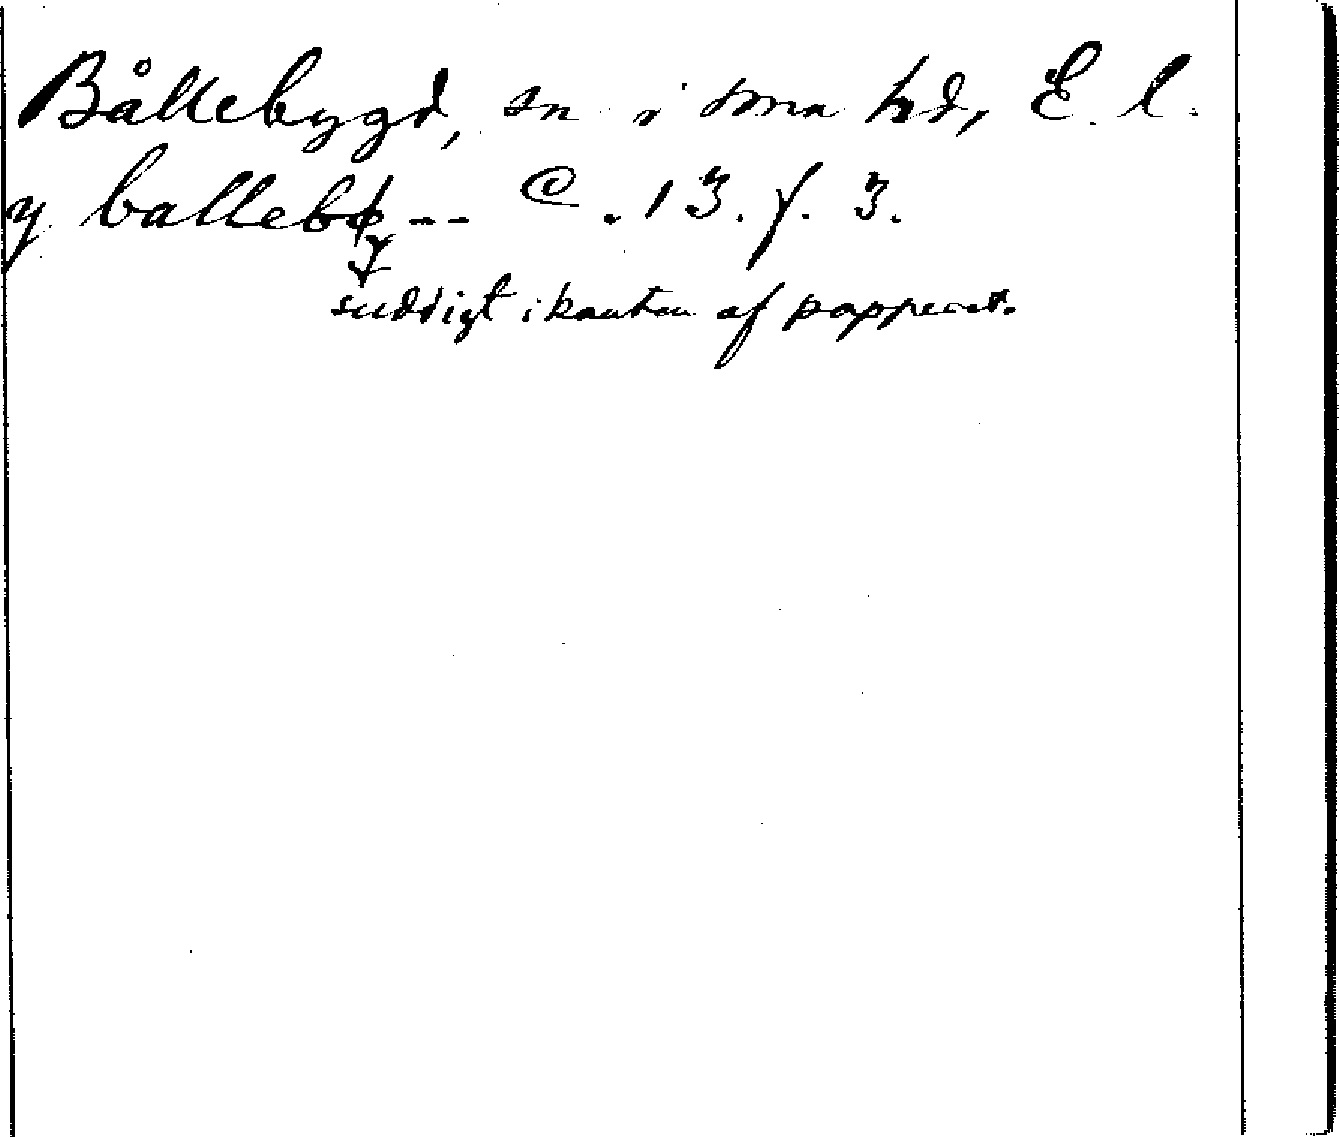 Bållebygd, sn i sma hd, E. l.
y ballebø-- C. 13. f. 3.
suddigt i kanten af papperet.